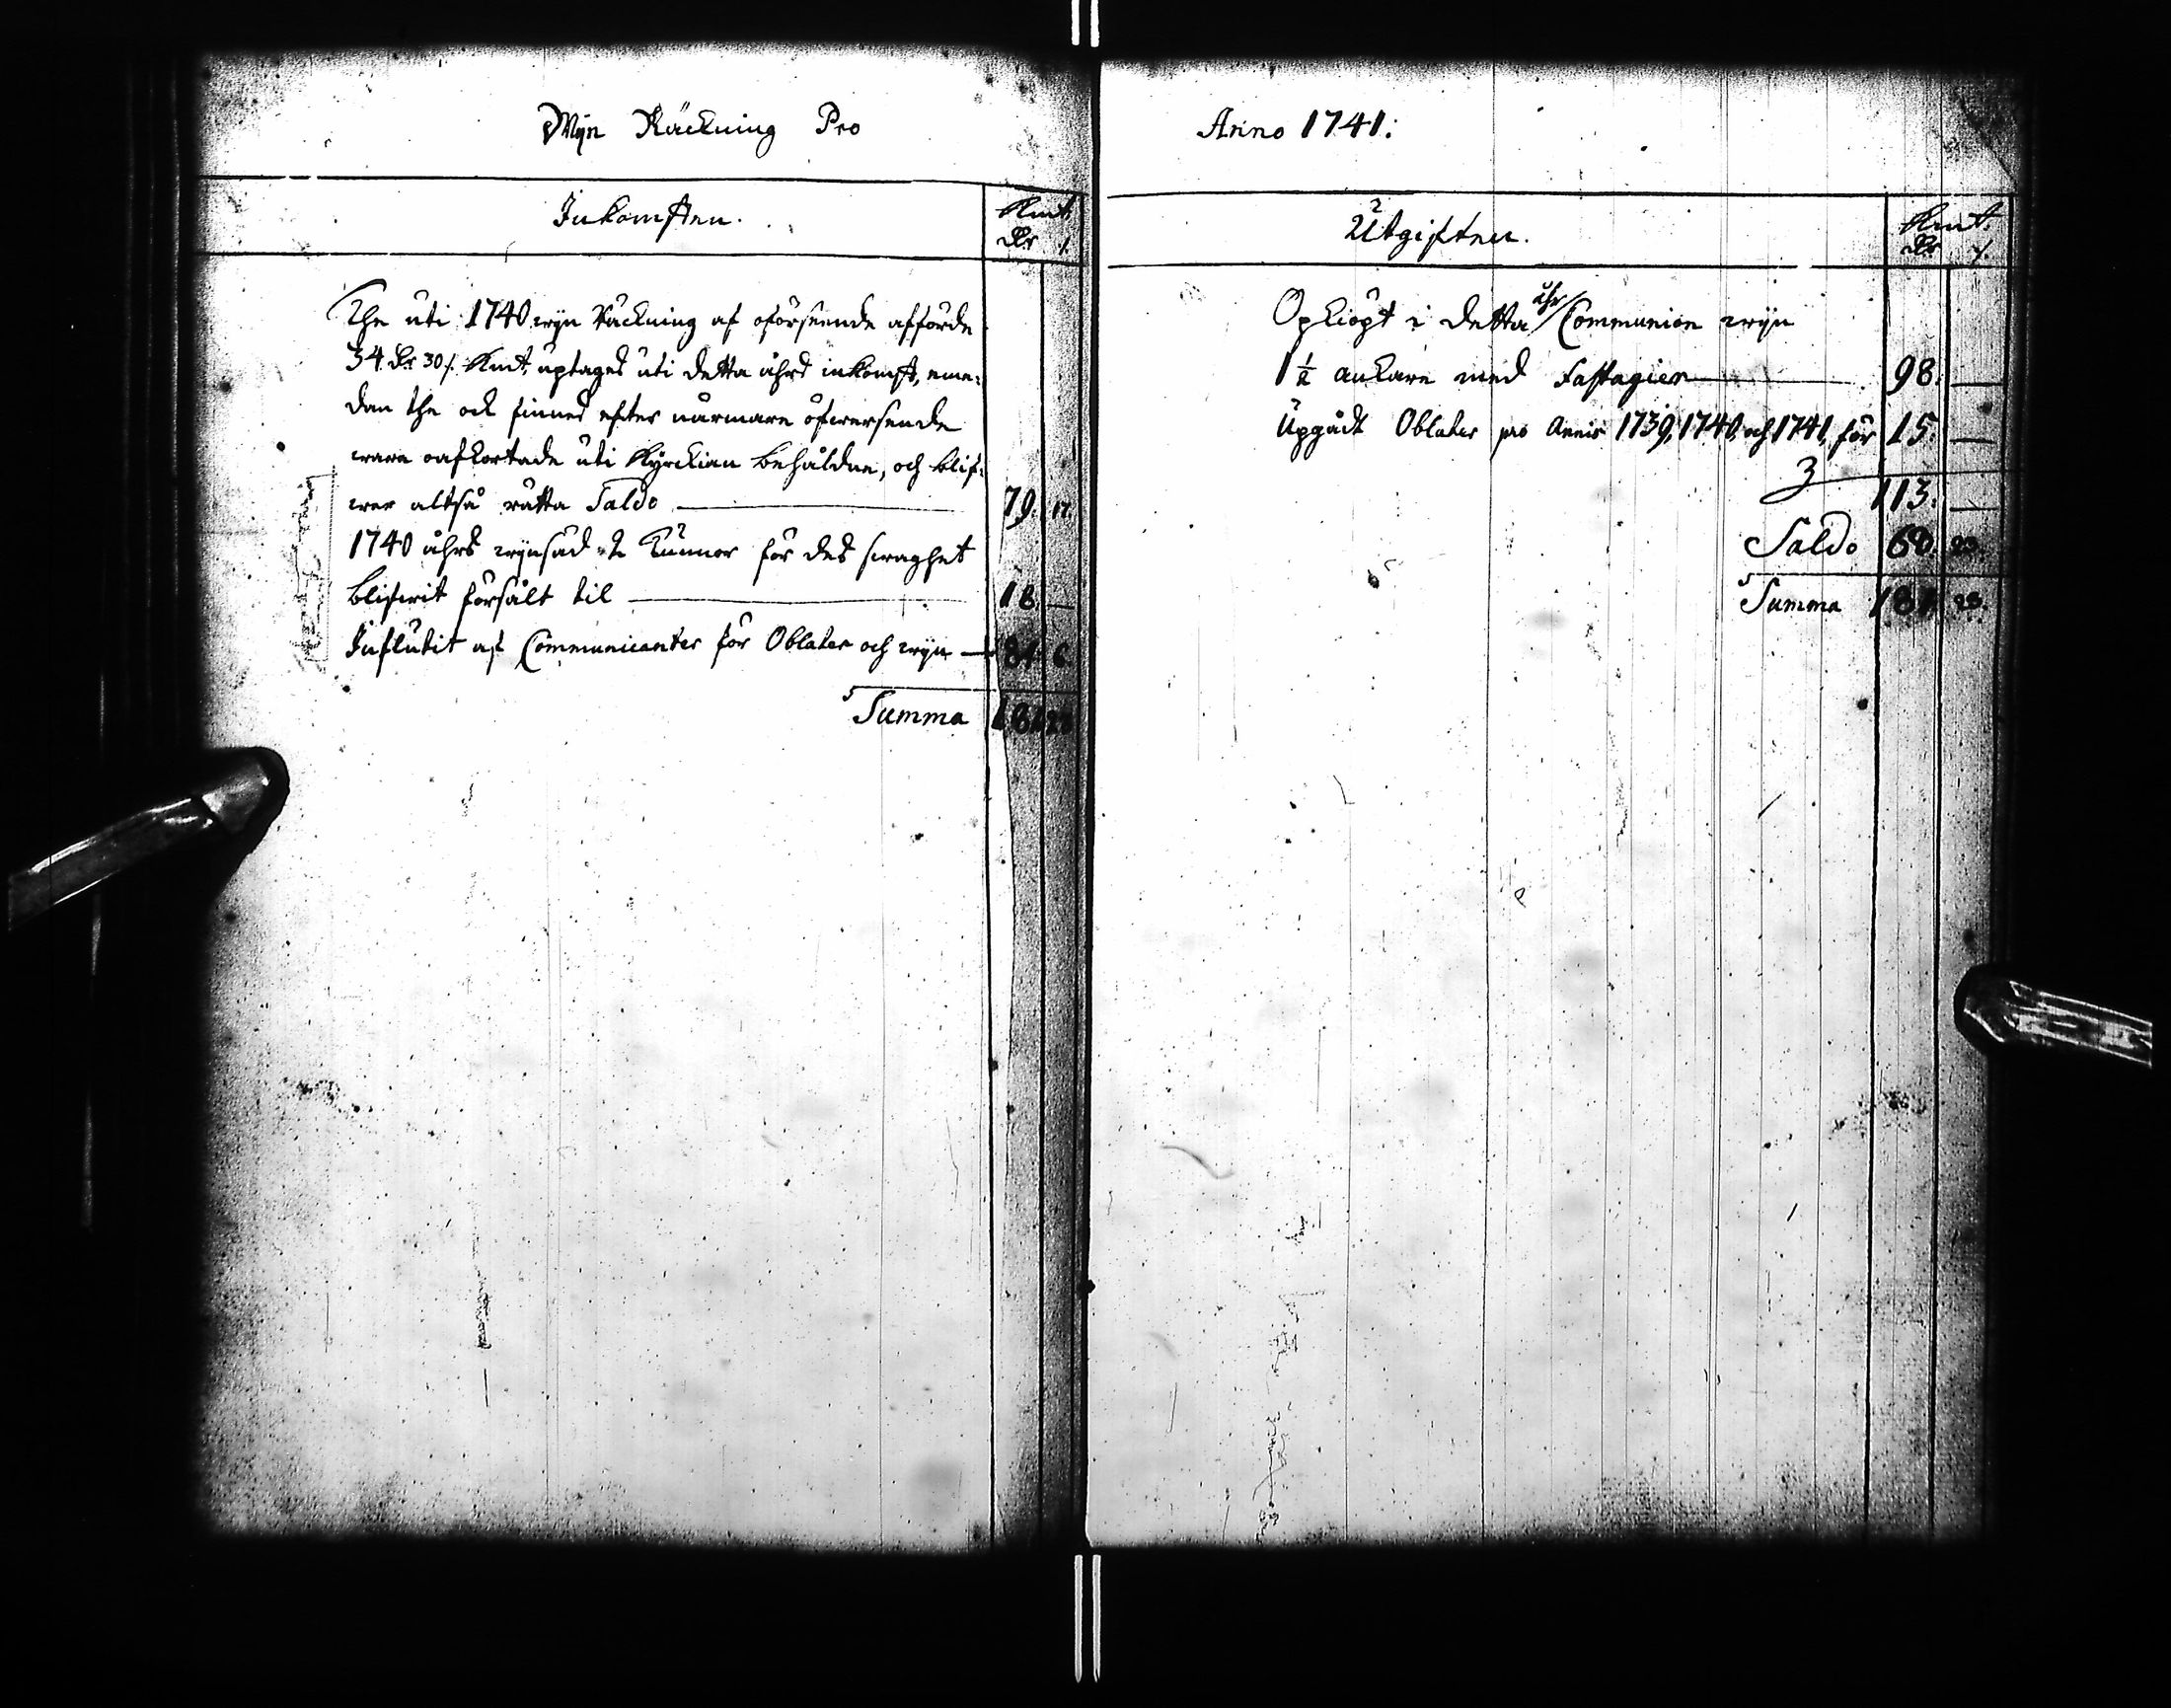 Wijn Räckning Pro
Inkomsten. Kmt.
Dr /.
The uti 1740 wijn Räckning af oförseende afförde
34 Dr 30/. Kmt, uptages uti detta åhrs inkomst, eme-
dan the ock finnes efter närmare öfwerseende
ware oafkortade uti Kyrckian behåldne, och blif-
wer altså rätta Saldo 79. 17.
1740 åhrs wijnsäd 2 Tunnor för des swaghet
blifwit försålt til 18. —
Influtit af Communicanter för Oblater och wijn 84. 6.
Summa 181. 23.
Anno 1741.
Utgifter. Kmt.
Dr /.
Opkiöpt i detta åhr Communion wijn
1 1/2 ankare med Fastagier 98. —
Upgådt Oblater pro Annis 1739, 1740, och 1741, för 15. —
113. —
Saldo 68. 23.
Summa 181. 23.